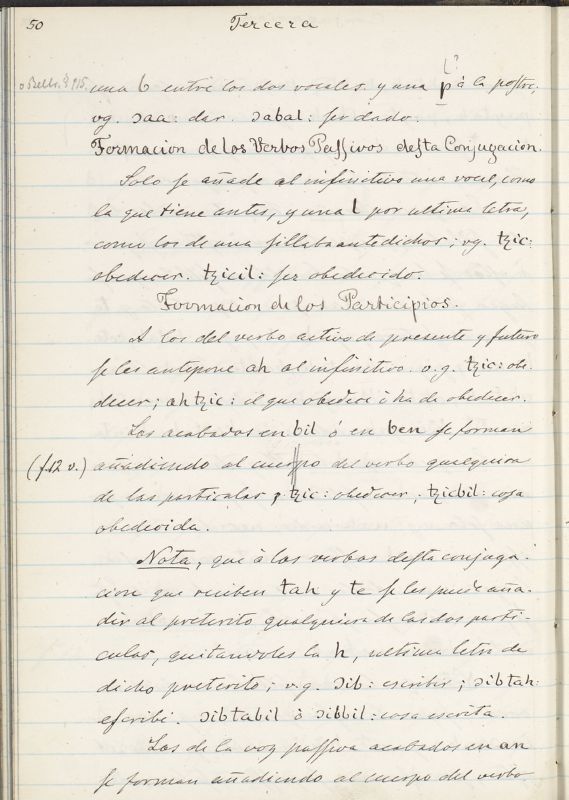 50 Tercera
o Beltr. § 115. una b entre los dos vocales. y una p à la postre,
l?
vg. ɔaa: dar. ɔabal: ser dado.
Formacion de los Verbos Passivos desta Conjugacion.
Solo se añade al infinitivo una vocal, como
la que tiene antes, y una l por ultima letra,
como los de una sillaba antedichos; vg. tzic:
obedecer. tzicil: ser obedecido.
Formacion de los Participios.
A los del verbo activo de presente y futuro
se les antepone ah al infinitivo. v.g. tzic: obe-
decer; ahtzic: el que obedece ò ha de obedecer.
Los acabados en bil ó en ben se forman
(f.12 v.) añadiendo al cuerpo del verbo qualquiera
de las particulas, tzic: obedecer; tzicbil: cosa
obedecida.
Nota, que à los verbos desta conjuga-
cion que reciben tah y te se les puede aña-
dir al preterito qualquiera de las dos parti-
culas, quitandoles la h, ultima letra de
dicho preterito; v.g. ɔib: escribir; ɔibtah:
escribi. ɔibtabil ò ɔibbil: cosa escrita.
Los de la voz passiva acabados en an
se forman añadiendo al cuerpo del verbo